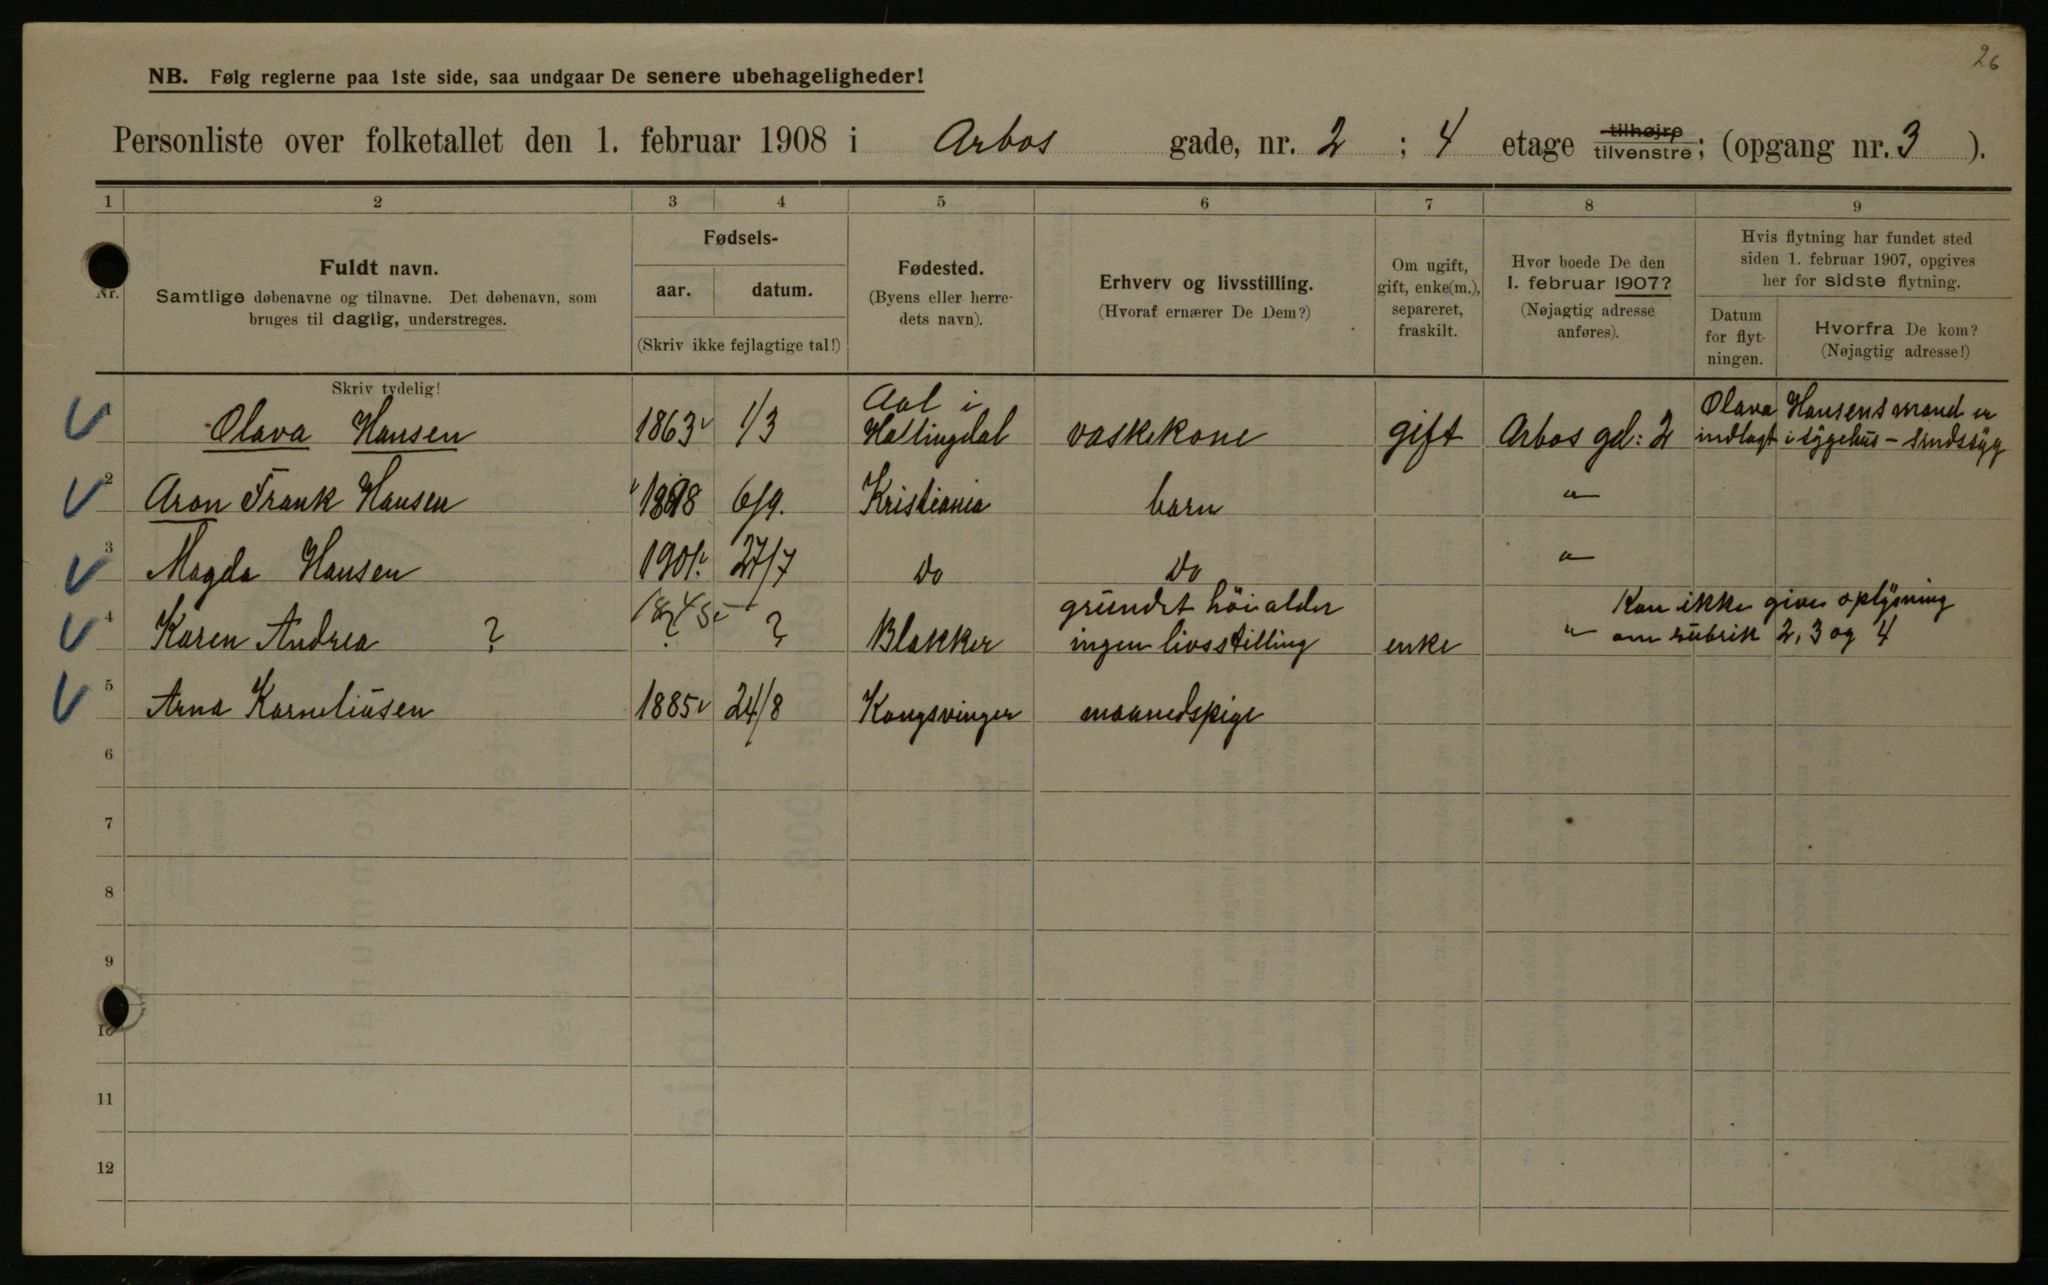 26
NB. Følg reglerne paa 1ste side, saa undgaar De senere ubehageligheder!
Personliste over folketallet den 1. februar 1908 i Arbos gade, nr. 2 ; 4 etage tilhøjre tilvenstre; (opgang nr. 3 ).
1 2 3 4 5 6 7 8 9
Nr.
Fuldt navn.
Samtlige døbenavne og tilnavne. Det døbenavn, som
bruges til daglig, understreges.
Fødsels-
aar. datum.
(Skriv ikke fejlagtige tal!)
Fødested.
(Byens eller herre-
dets navn).
Erhverv og livsstilling.
(Hvoraf ernærer De Dem?)
Om ugift,
gift, enke(m.),
separeret,
fraskilt.
Hvor boede De den
1. februar 1907?
(Nøjagtig adresse
anføres).
Hvis flytning har fundet sted
siden 1. februar 1907, opgives
her for sidste flytning.
Datum
for flyt-
ningen.
Hvorfra De kom?
(Nøjagtig adresse!)
Skriv tydelig!
1 Olava Hansen 1863 1/3 Aal i
Hallingdal vaskekone gift Arbos gd: 2 Olava Hansens mand er
indlagt i sygehus - sindssyg
2 Aron Frank Hansen 1898 6/9. Kristiania barn "
3 Magda Hansen 1901 27/7 do do "
4 Karen Andrea ? 1845 ? ? Blakker grundet höi alder
ingen livsstilling enke " Kan ikke give oplysning
om rubrik 2, 3 og 4
5 Arna Karneliusen 1885 24/8 Kongsvinger maanedspige
6
7
8
9
10
11
12